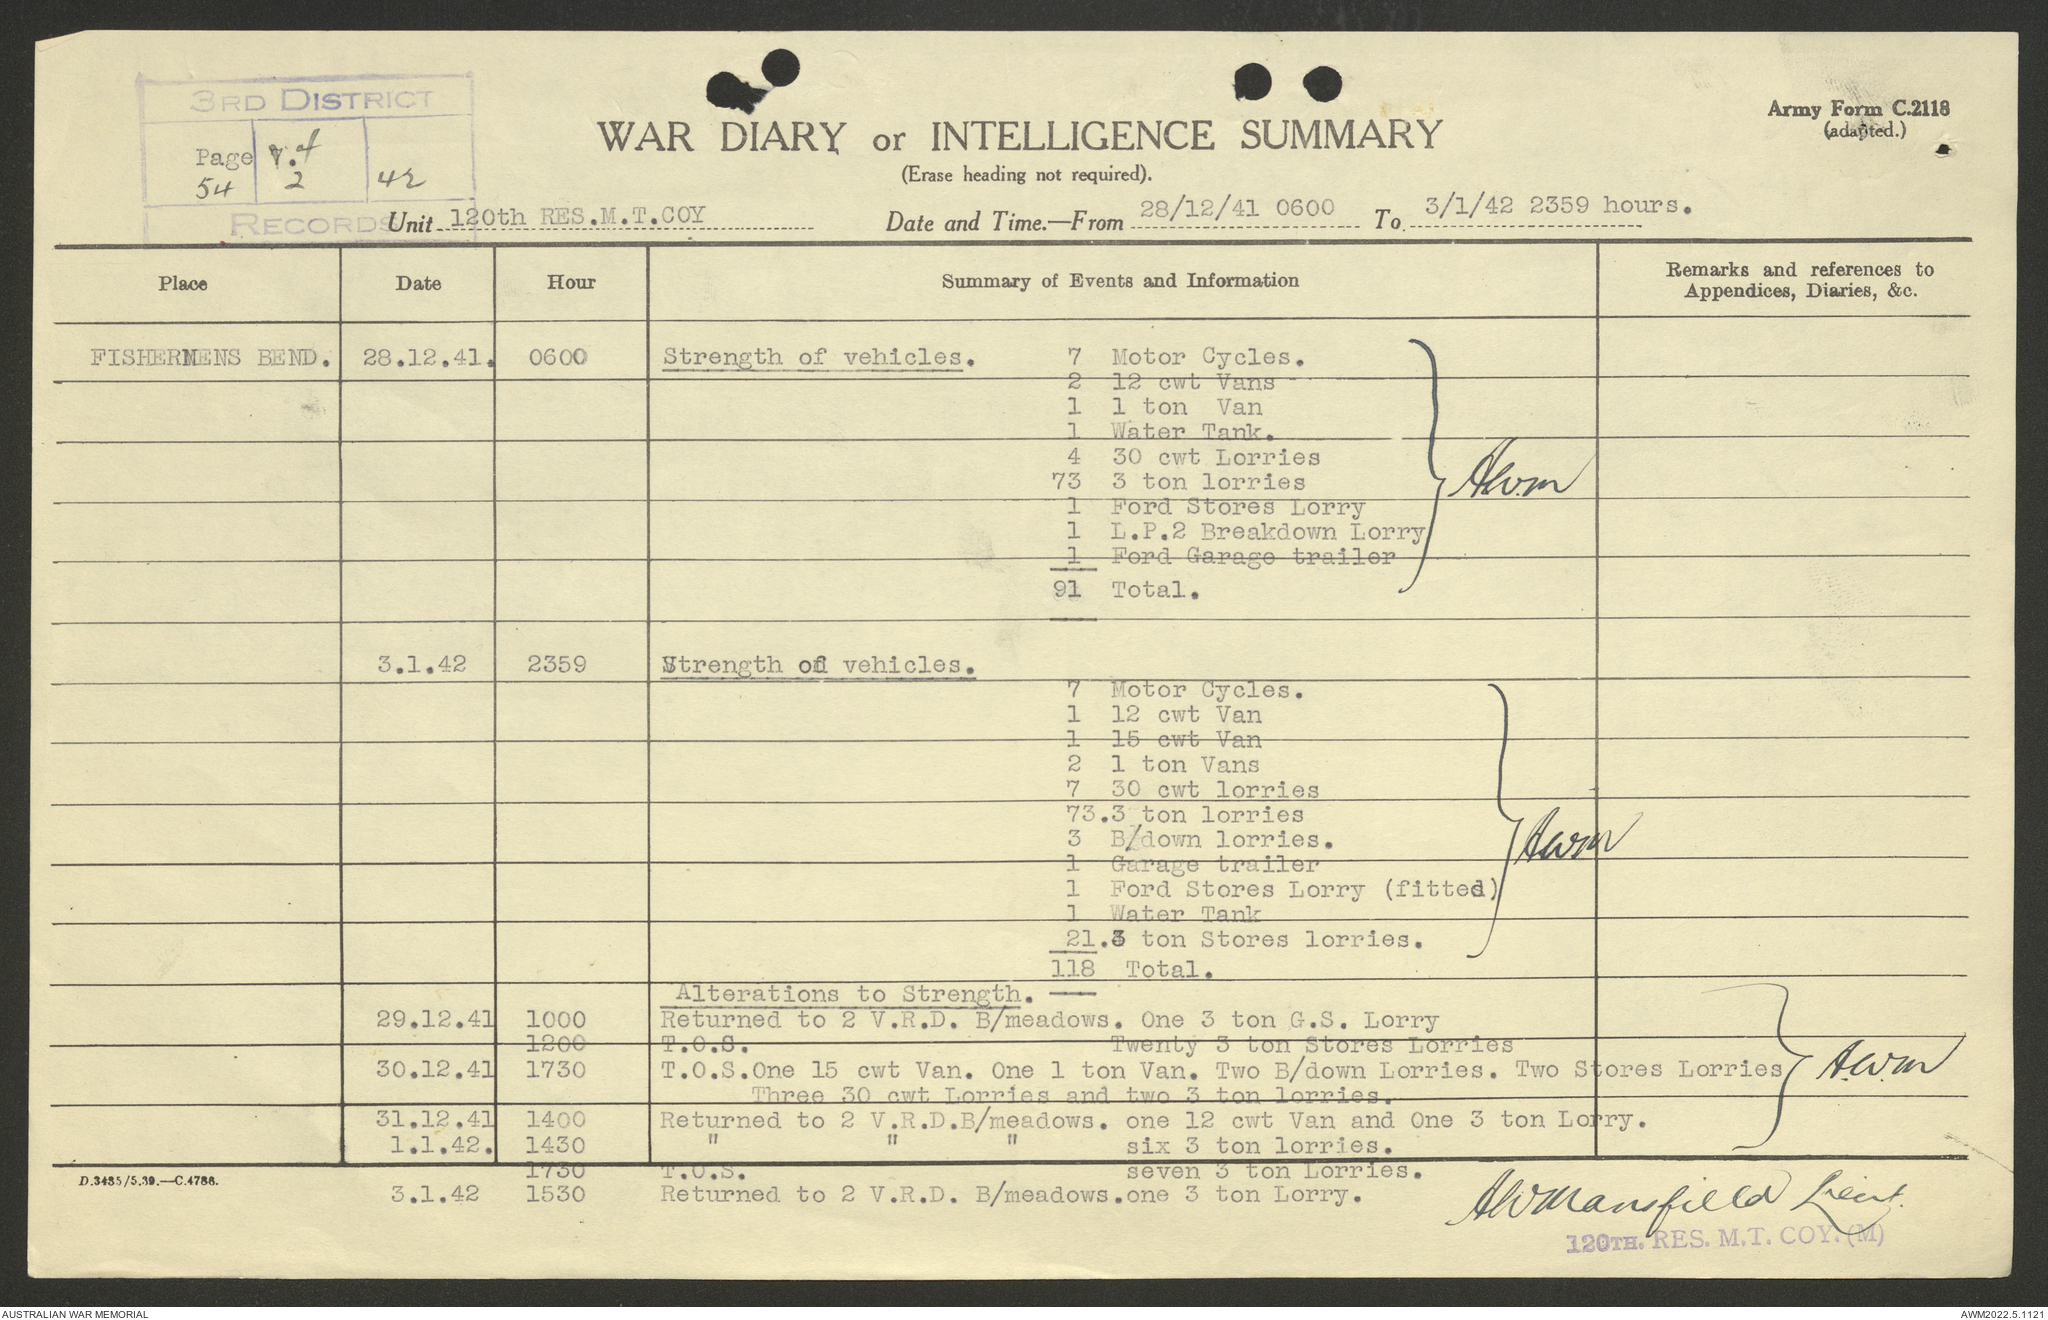 3RD DISTRICT
Page 7.4
54 2 42
RECORDS
WAR DIARY or INTELLIGENCE SUMMARY
(Erase heading not required).
Army Form C.2118
(adapted.)
Unit 120th RES.M.T.COY Date and Time.—From 28/12/41 0600 To 3/1/42 2359 hours.
Place Date Hour Summary of Events and Information Remarks and references to
Appendices, Diaries, &c.
FISHERMENS BEND. 28.12.41. 0600 Strength of vehicles. 7 Motor Cycles.
2 12 cwt Vans
1 1 ton Van
1 Water Tank.
4 30 cwt Lorries
73 3 ton lorries
A.W.M
1 Ford Stores Lorry
1 L.P.2 Breakdown Lorry
1 Ford Garage trailer
91 Total.
3.1.42 2359 Strength of vehicles.
7 Motor Cycles.
1 12 cwt Van
1 15 cwt Van
2 1 ton Vans
7 30 cwt lorries
73.3 ton lorries
3 B/down lorries.
AWM
1 Garage trailer
1 Ford Stores Lorry (fitted)
1 Water Tank
21.3 ton Stores lorries.
118 Total.
Alterations to Strength.
29.12.41 1000 Returned to 2 V.R.D. B/meadows. One 3 ton G.S. Lorry
1200 T.O.S. Twenty 3 ton Stores Lorries
30.12.41 1730 T.O.S.One 15 cwt Van. One 1 ton Van. Two B/down Lorries. Two Stores Lorries A.W.M
Three 30 cwt Lorries and two 3 ton lorries.
31.12.41 1400 Returned to 2 V.R.D.B/meadows. one 12 cwt Van and One 3 ton Lorry.
1.1.42. 1430 " " " six 3 ton lorries.
1730 T.O.S. seven 3 ton Lorries.
D.3485/5.39.—C.4786.
3.1.42 1530 Returned to 2 V.R.D. B/meadows.one 3 ton Lorry.
AWMansfield Lieut.
120TH. RES. M.T. COY. (M)
AUSTRALIAN WAR MEMORIAL
AWM2022.5.1121